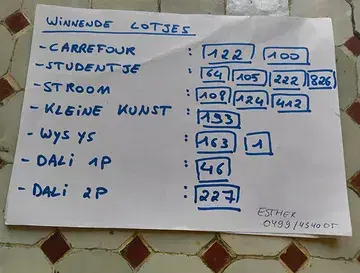 WINNENDE LOTJES
- CARREFOUR : 122 100
- STUDENTJE : 64 105 222 826
- STROOM : 108 124 412
- KLEINE KUNST : 193
- WYS YS : 163 1
- DALI 1P : 46
- DALI 2P : 227
ESTHER